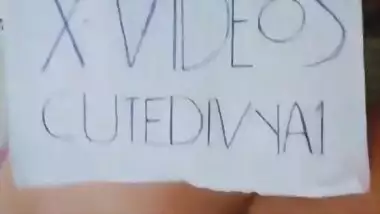 X VIDEOS
CUTEDIVYA1